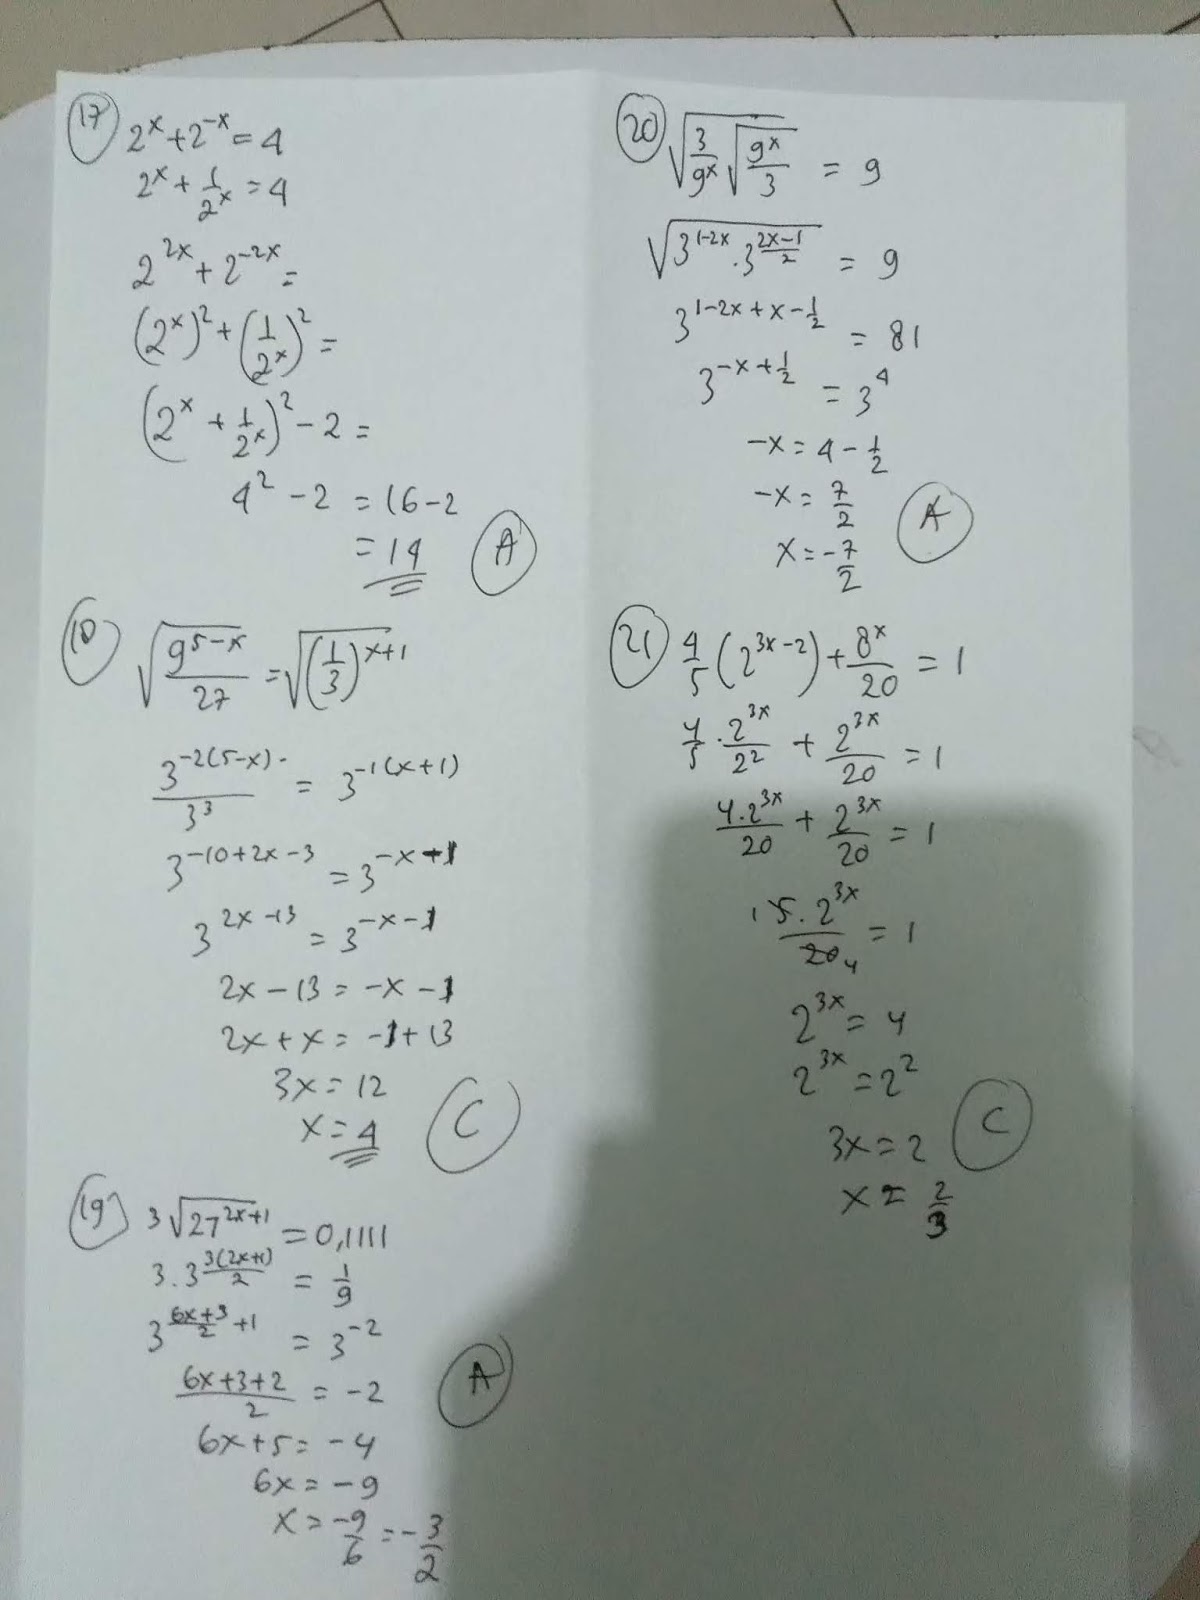 17
2^x + 2^-x = 4
2^x + 1/2^x = 4
2^2x + 2^-2x =
(2^x)^2 + (1/2^x)^2 =
(2^x + 1/2^x)^2 - 2 =
4^2 - 2 = 16 - 2
= 14
A
18
√(9^5-x/27) = √(1/3)^x+1
3^-2(5-x)/3^3 = 3^-1(x+1)
3^-10+2x-3 = 3^-x-1
3^2x-13 = 3^-x-1
2x - 13 = -x - 1
2x + x = -1 + 13
3x = 12
x = 4
C
19
3√(27^2x+1) = 0,1111
3 . 3^3(2x+1)/2 = 1/9
3^6x+3/2 +1 = 3^-2
6x+3+2/2 = -2
6x + 5 = -4
6x = -9
x = -9/6 = -3/2
A
20
√(3/9^x √(9^x/3)) = 9
√(3^1-2x . 3^2x-1/2) = 9
3^1-2x+x-1/2 = 81
3^-x+1/2 = 3^4
-x = 4 - 1/2
-x = 7/2
x = -7/2
A
21
4/5 (2^3x-2) + 8^x/20 = 1
4/5 . 2^3x/2^2 + 2^3x/20 = 1
4.2^3x/20 + 2^3x/20 = 1
1 5. 2^3x/20 4 = 1
2^3x = 4
2^3x = 2^2
3x = 2
x = 2/3
C